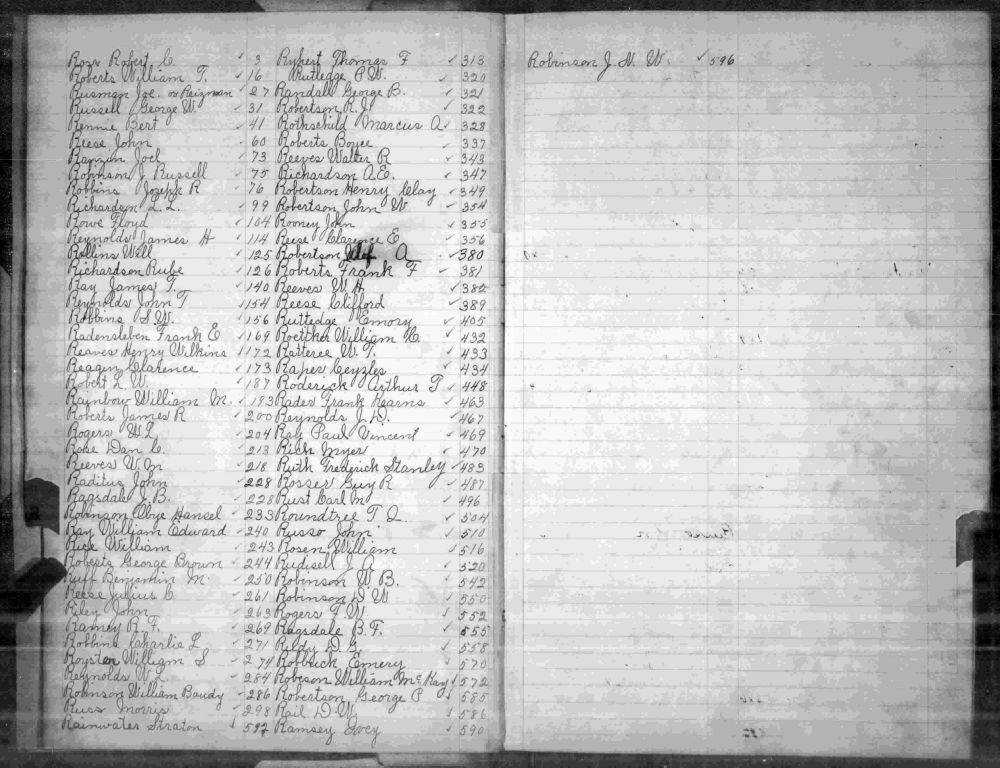 Ross Robert C. ✓ 3
Roberts William T. ✓ 16
Rusman Joe. or Reizman ✓ 27
Russell George W. ✓ 31
Rennie Bert ✓ 41
Reese John ✓ 60
Joel ✓ 73
Robinson J Russell ✓ 75
Robbins Joseph R ✓ 76
Richardson L. L. ✓ 99
Rowe Floyd ✓ 104
Reynolds James H ✓ 114
Rollins Will ✓ 125
Richardson Rube ✓ 126
Ray James T. ✓ 140
Reynolds John T ✓ 154
Robbins S. W. ✓ 156
Radensleben Frank E ✓ 169
Reaves Henry Wilkins ✓ 172
Reagin Clarence ✓ 173
Robert L W. ✓ 187
Rainbow William M. ✓ 193
Roberts James R ✓ 200
Rogers W L ✓ 204
Rose Dan C. ✓ 213
Reeves W m ✓ 218
Raditus John ✓ 228
Ragsdale J. B. ✓ 228
Robinson Abye Hansel ✓ 233
Ray William Edward ✓ 240
Rice William ✓ 243
Roberts George Brown ✓ 244
Ruff Benjamin M ✓ 250
Reese Julius C ✓ 261
Riley John ✓ 263
Ramey R. F. ✓ 269
Robbins Charlie L ✓ 271
Royster William S ✓ 274
Reynolds W L ✓ 284
Robinson William Baudy ✓ 286
Russ Morris ✓ 298
Rainwater Straton ✓ 592
Rykert Thomas F ✓ 313
Rutledge P. W. ✓ 320
Randall George B. ✓ 321
Robertson R. J. ✓ 322
Rothschild Marcus A. ✓ 328
Roberts Boyce ✓ 337
Reeves Walter R ✓ 343
Richardson A. E. ✓ 347
Robertson Henry Clay ✓ 349
Robertson John W ✓ 354
Rooney John ✓ 355
Reese Clarence E ✓ 356
Robertson A ✓ 380
Roberts Frank F ✓ 381
Reeves W H ✓ 382
Reese Clifford ✓ 389
Rutledge Emory ✓ 405
Roettker William H ✓ 432
Ratteree W. T. ✓ 433
Raper Ceyzles ✓ 434
Roderick Arthur T ✓ 448
Rader Frank Kearns ✓ 463
Reynolds J. D. ✓ 467
Ray Paul Vincent ✓ 469
Rich Myer ✓ 470
Ruth Frederick Stanley ✓ 483
Rosser Guy R ✓ 487
Rust Carl M ✓ 496
Roundtree T. L. ✓ 504
Russo John ✓ 510
Rosen William ✓ 516
Rudisell J A ✓ 520
Robinson W B. ✓ 542
Robinson D W ✓ 550
Rogers T. W. ✓ 552
Ragsdale B. F. ✓ 555
D. G. ✓ 558
Robbuck Emery ✓ 570
Robeson William McKay ✓ 572
Robertson George P ✓ 585
Rail D W. ✓ 586
Ramsey Joey ✓ 590
Robinson J. N. W. ✓ 596